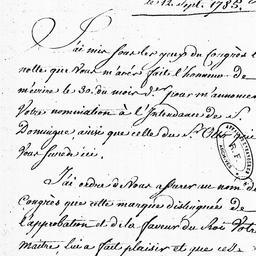 le 12. Sept. 1785.
J'ai mis sous les yeux du Congrès l
notte que Vous m'avés fait l'honneur de
m'écrire le 30. du mois d.er pour m'annoncer
Votre nomination à l'Intendance de S.
Domingue ainsi que celle du S. Otto
vous succéder ici.
J'ai ordre de Vous assurer au nom du
Congrès que cette marque distinguée de
l'approbation et de la faveur du Roi Votre
maitre, lui a fait plaisir et que celle